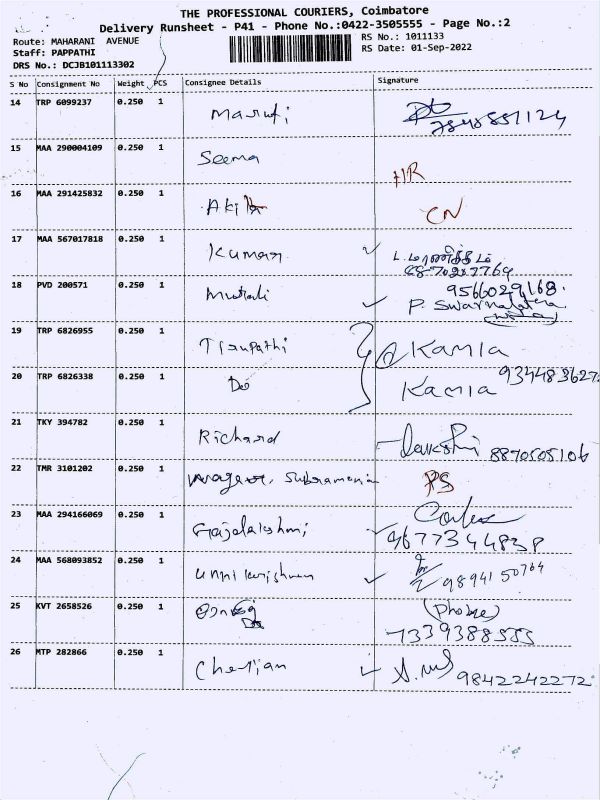 THE PROFESSIONAL COURIERS, Coimbatore
Delivery Runsheet - P41 - Phone No.:0422-3505555 - Page No.:2
Route: MAHARANI AVENUE
Staff: PAPPATHI
DRS No.: DCJB101113302
RS No.: 1011133
RS Date: 01-Sep-2022
S No Consignment No Weight PCS Consignee Details Signature
14 TRP 6099237 0.250 1 Maruti
15 MAA 290004109 0.250 1 Seema
16 MAA 291425832 0.250 1 CN
17 MAA 567017818 0.250 1 Kumar
18 PVD 200571 0.250 1 Murali 9566029168.
19 TRP 6826955 0.250 1 Tirupathi Kamla
20 TRP 6826338 0.250 1 Do Kamla
21 TKY 394782 0.250 1 Richard 8870505106
22 TMR 3101202 0.250 1 Subramania
23 MAA 294166069 0.250 1 Gajalakshmi 9677344838
24 MAA 568093852 0.250 1 Unnikrishnan 98941 50764
25 KVT 2658526 0.250 1 (Phone)
7339388555
26 MTP 282866 0.250 1 Cherian 9842242272